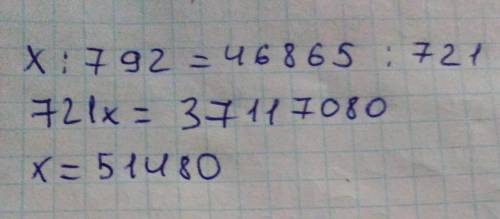 x : 792 = 46865 : 721
721x = 37117080
x = 51480